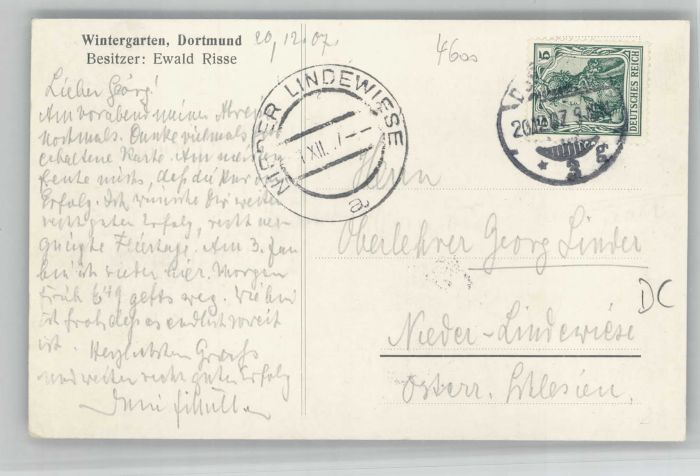 Wintergarten, Dortmund
Besitzer: Ewald Risse
20.12.07.
4600
Lieber Georg!
Am Vorabend meiner Abreise
nochmals Danke vielmals
erhaltene Karte. Am meisten
freute mich, daß die Kur
Erfolg. Ich wünsche Dir weiter
recht guten Erfolg, recht ver-
gnügte Feiertage. Am 3. Jan
bin ich wieder hier. Morgen
früh 6 49 gehts weg. Wie bin
ich froh daß es endlich soweit
ist. Herzlichsten Gruß
und weiter recht guten Erfolg
Dein
NIEDER LINDEWIESE
XII. 7
a
DEUTSCHES REICH
5
20.12.07.5
3 g
Herrn
Oberlehrer Georg Linder
Nieder-Lindewiese
Österr. Schlesien.
DC